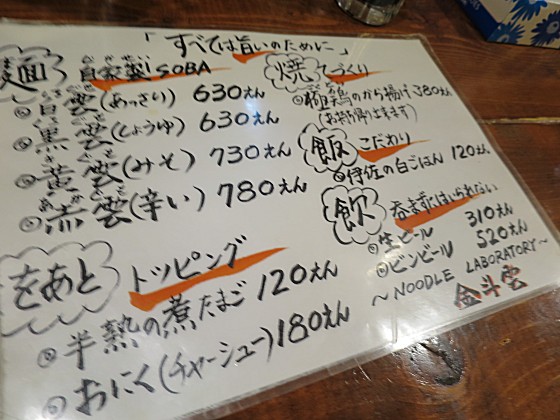 「すべては旨いのために」
麺 自家製SOBA
白雲(あっさり) 630えん
黒雲(しょうゆ) 630えん
黄雲(みそ) 730えん
赤雲(辛い) 780えん
をあと トッピング
半熟の煮たまご 120えん
おにく(チャーシュー) 180えん
焼 てづくり
鶏のから揚げ 380えん
(お持ち帰り出来ます)
飯 こだわり
伊佐の白ごはん 120えん
飲 呑まずにはいられない
生ビール 310えん
ビンビール 520えん
～NOODLE LABORATORY～
金斗雲